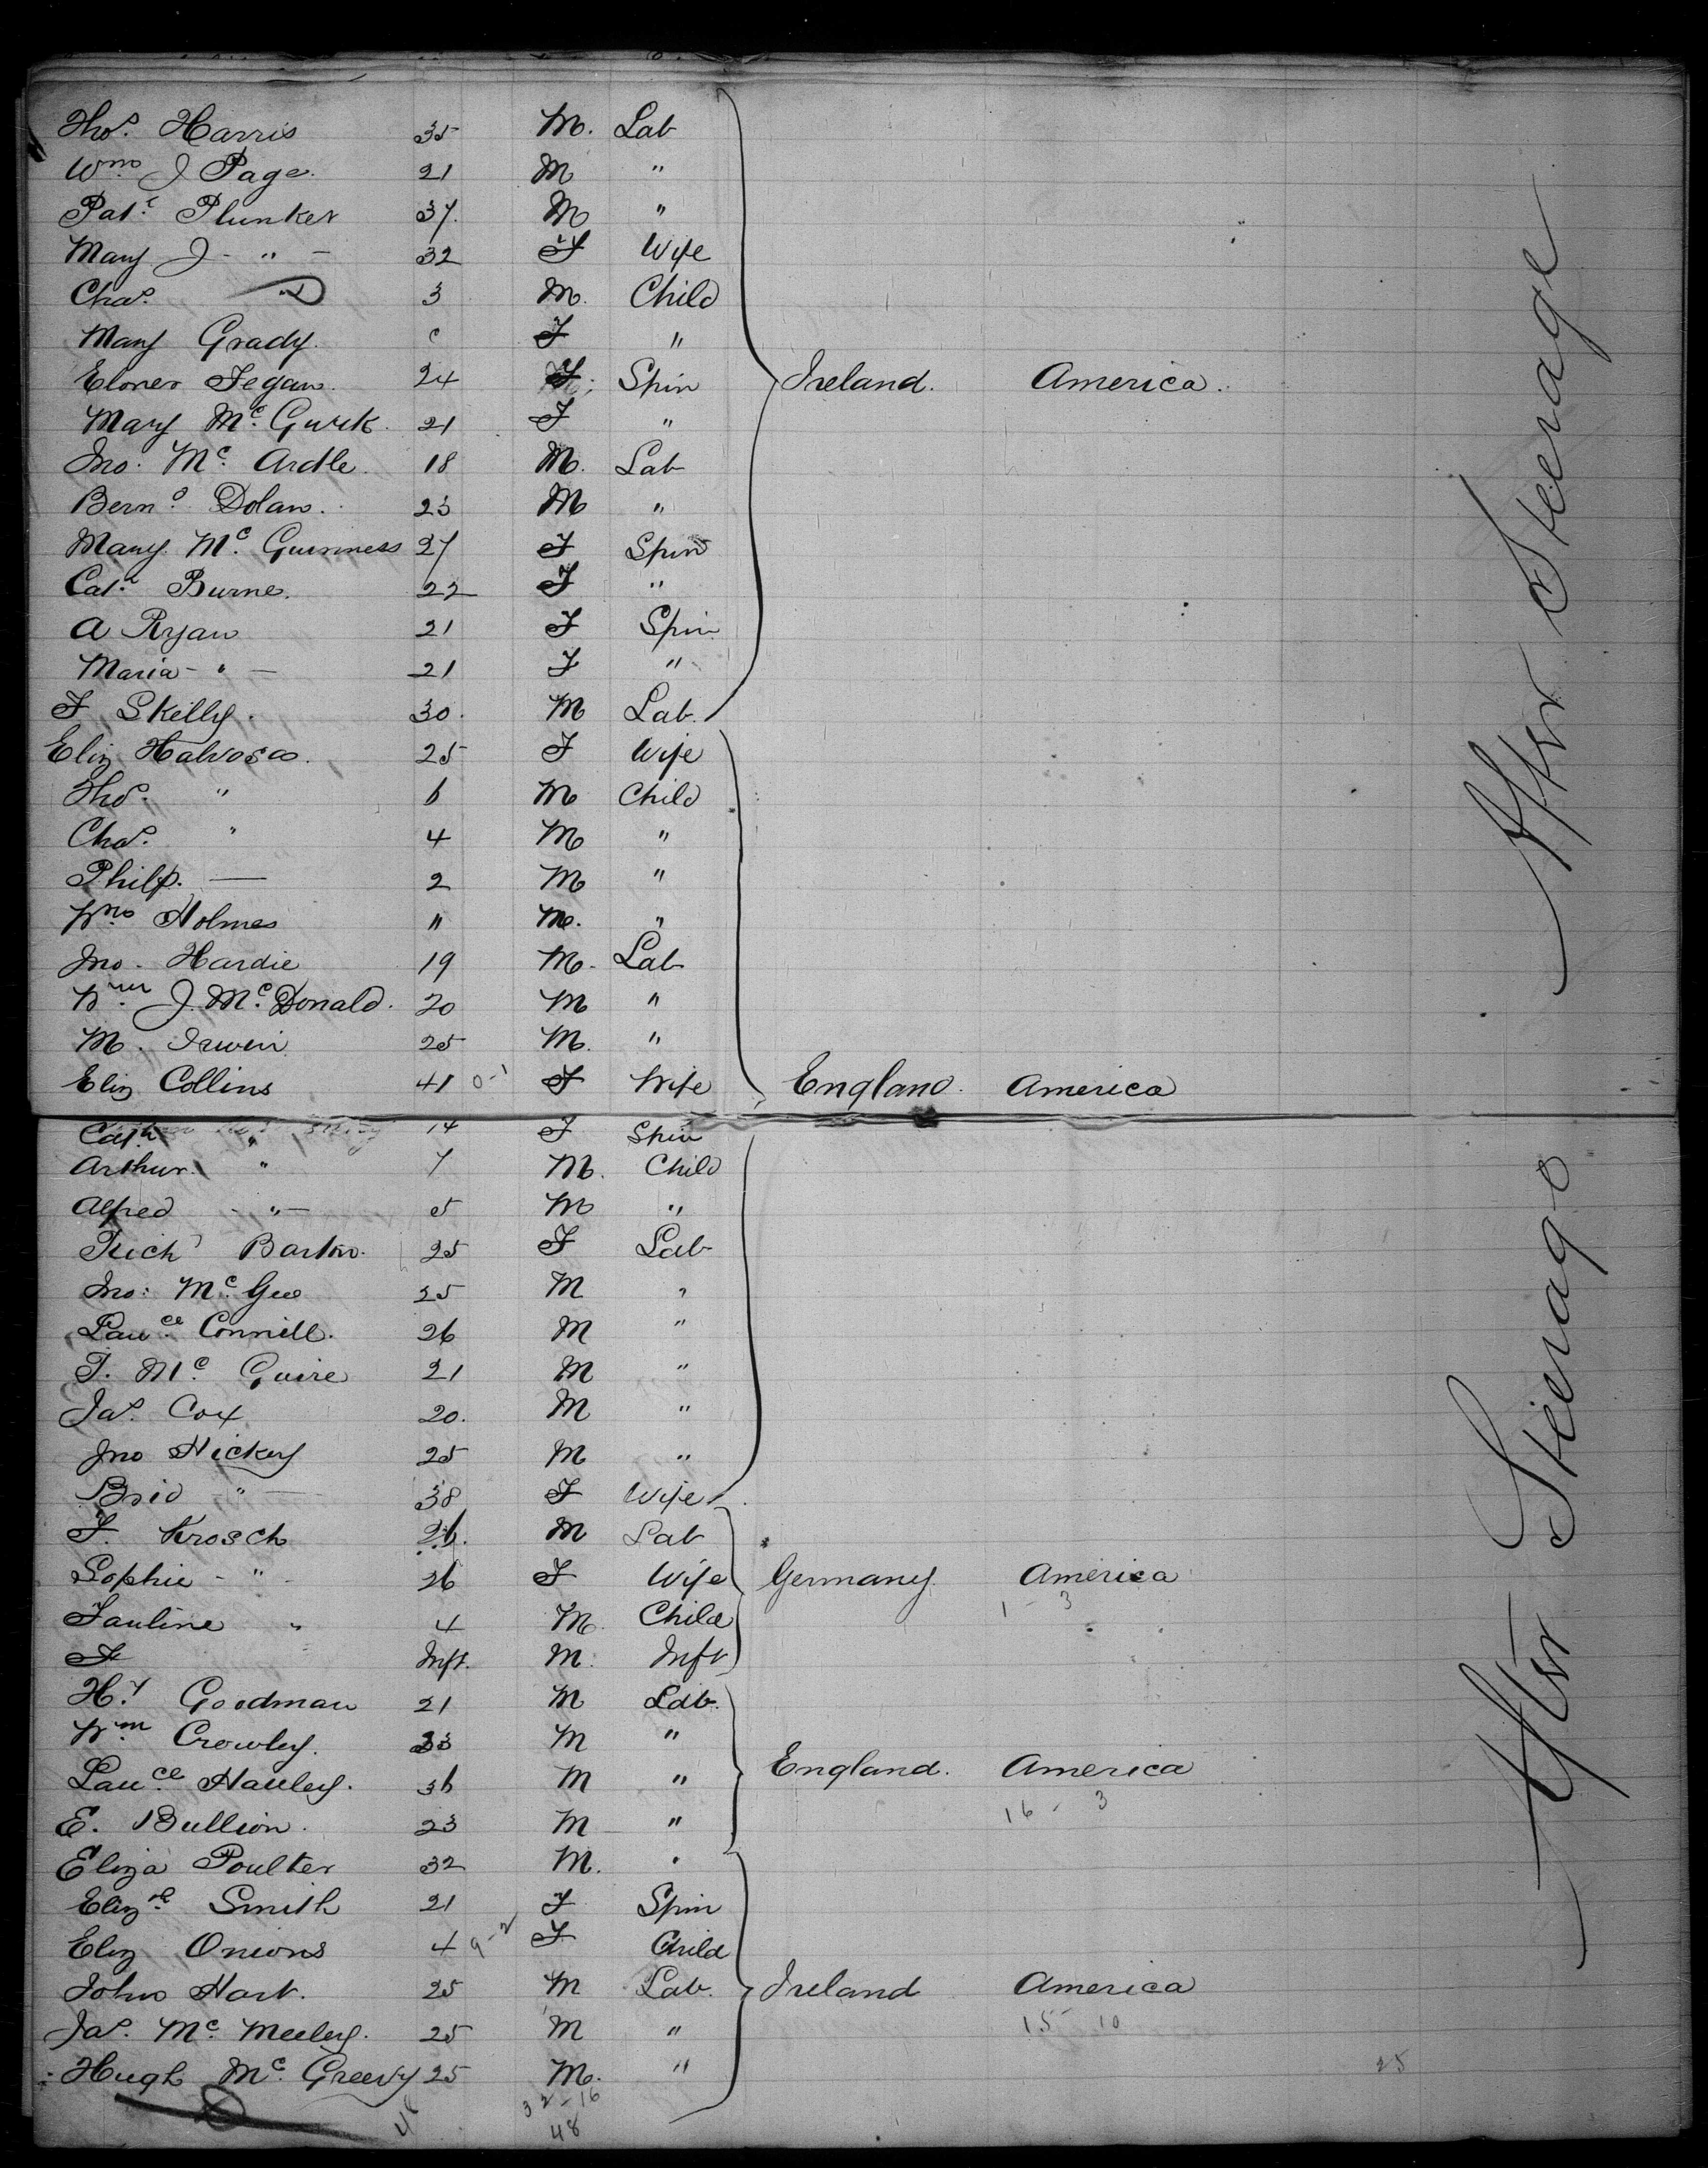 Thos. Harris 35 M. Lab
Wm J Page. 21 M "
Patk. Plunket 37. M "
Mary J - " - 32 F Wife
Chas. 3 M. Child
Mary Grady. F "
Eloner Fegan. 24 F Spin Ireland. America.
Mary Mc. Gurk. 21 F "
Jno. Mc. Ardle. 18 M. Lab
Bernd. Dolan. 23 M "
Mary. Mc. Guinness 27 F Spin
Cath. Burne. 22 F "
A Ryan 21 F Spin
Maria - " - 21 F "
F Skelly. 30. M Lab.
Eliz Halvosa. 25 F Wife
Thos. " 6 M Child
Chas. " 4 M "
Philp. — 2 M "
Wm Holmes " M. "
Jno. Hardie 19 M. Lab
Wm J. Mc. Donald. 20 M "
M. Irwin 25 M. "
Eliz Collins 41 F Wife England. America
After Steerage
Cath " 14 F Spin
Arthur. " 7 M. Child
Alfred - " - 5 M "
Richd Barton. 25 F Lab
Jno: Mc. Gee 25 M "
Lauce. Connell. 26 M "
T. Mc Guire 21 M "
Jas. Cox 20. M "
Jno Hickey 25 M "
Brid " 38 F Wife
F. Krosch 26. M Lab
Sophie - " - 26 F Wife Germany. America
1 - 3
Pauline " 4 M. Child
F Inft. M. Inft
Hy. Goodman 21 M Lab.
Wm. Crowley. 33 M "
Lauce. Hauley. 36 M " England. America
16 - 3
E. Bullion. 23 M "
Eliza Poulter 32 M. "
Elizh. Smith 21 F Spin
Eliz Onions 4 9-2 F Child
John Hart. 25 M Lab. Ireland America
15 10
Jas. Mc. Meeley. 25 M "
Hugh Mc. Greevy 25 M. " 25
48 32-16
48
After Steerage